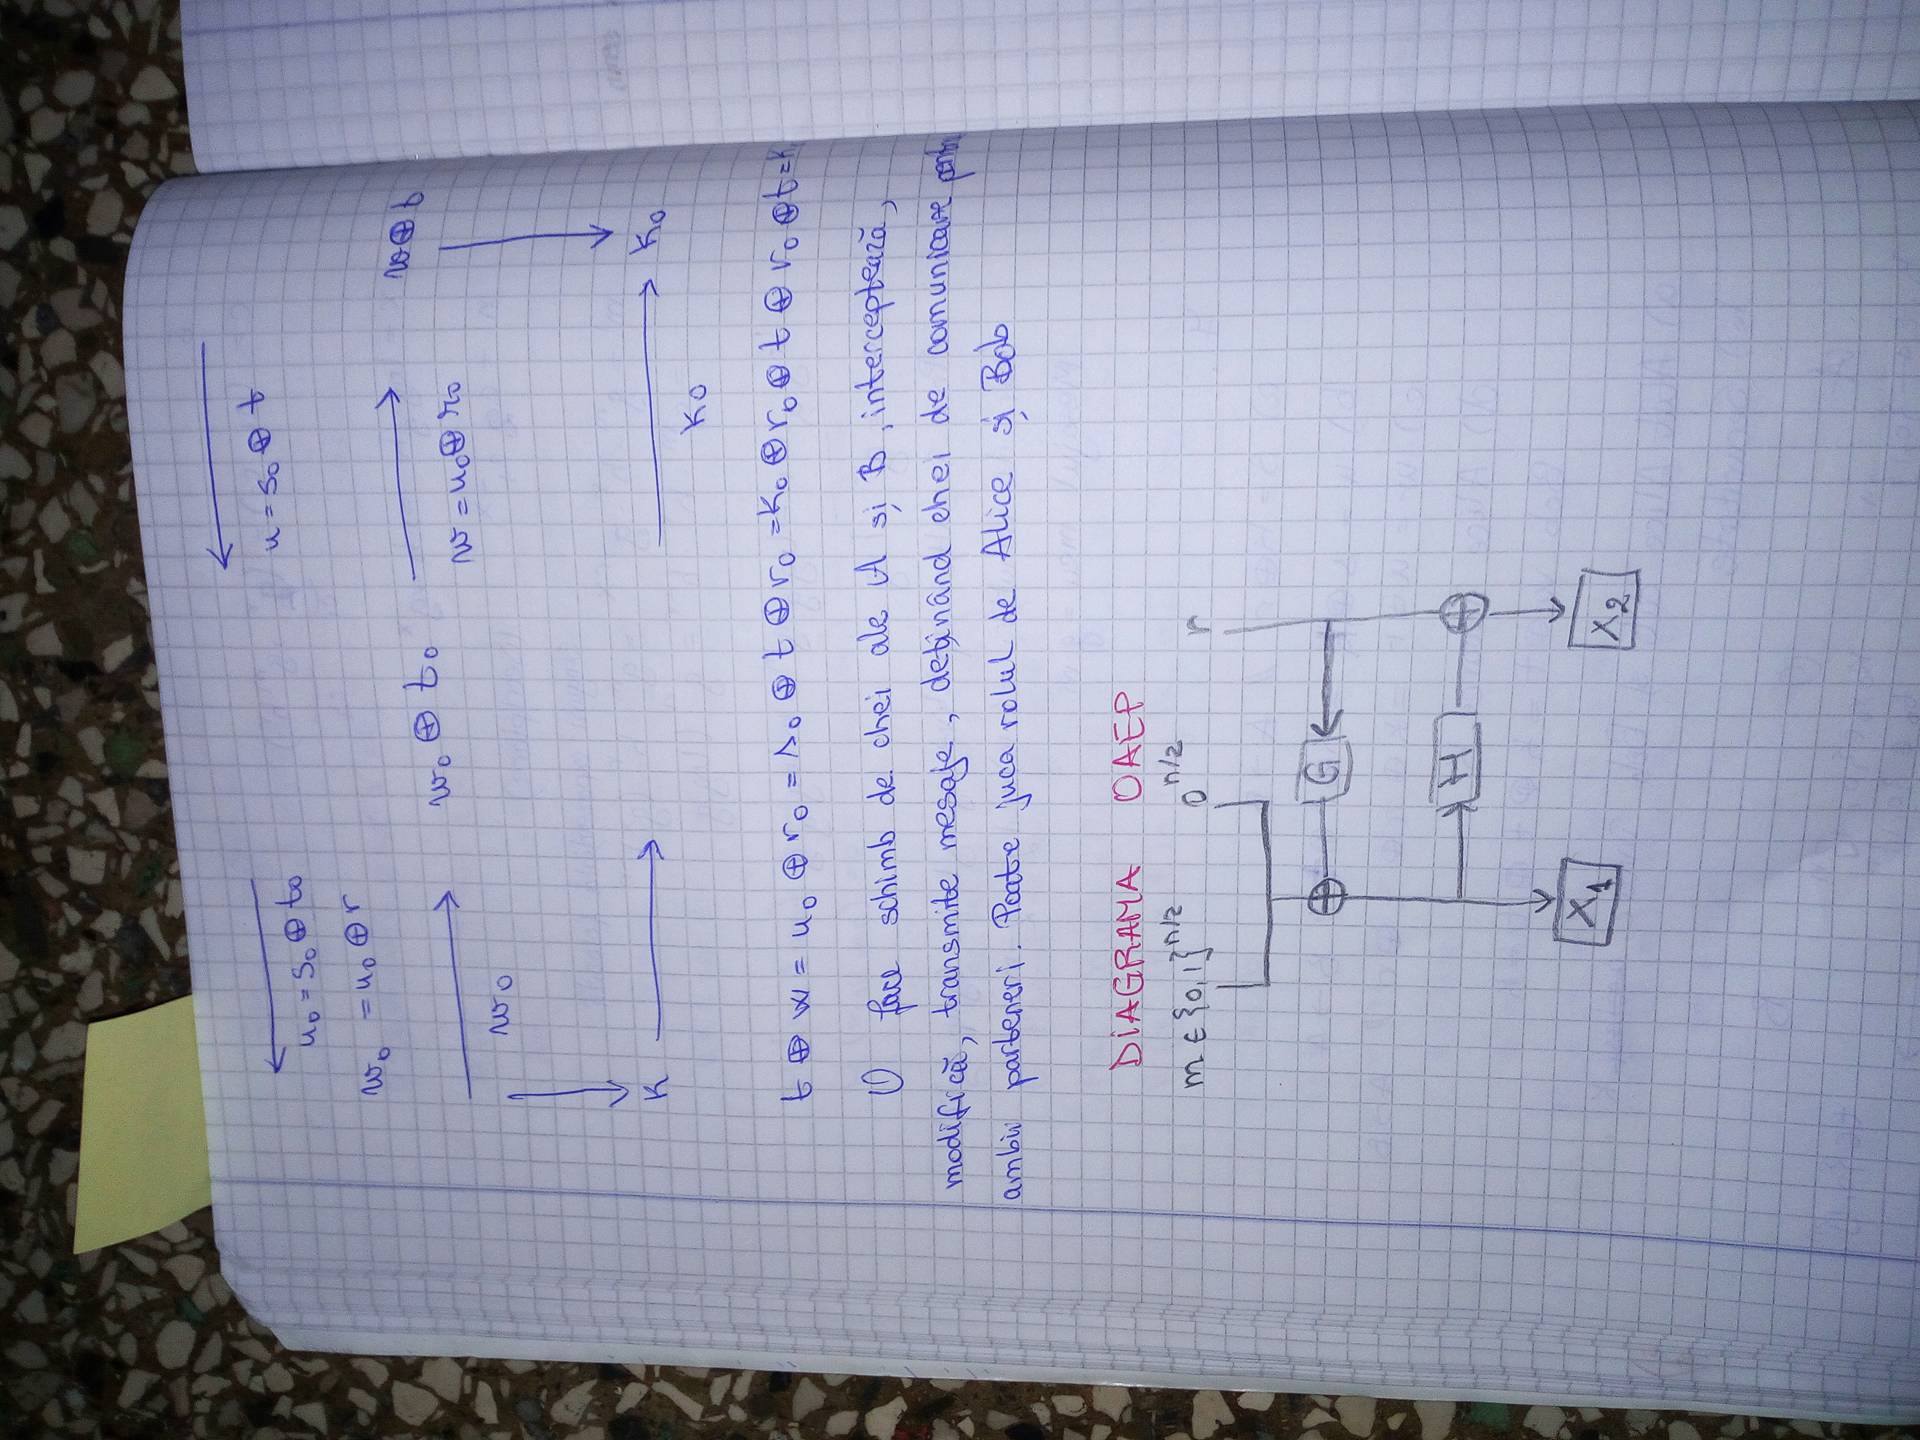 u = s₀ ⊕ t
u₀ = s₀ ⊕ t₀
w₀ = u₀ ⊕ r
w ⊕ t
w₀ ⊕ t₀
w = u₀ ⊕ r₀
w₀
K K₀
K₀
t ⊕ w = u₀ ⊕ r₀ = s₀ ⊕ t ⊕ r₀ = K₀ ⊕ r₀ ⊕ t ⊕ r₀ ⊕ t = K
face schimb de chei ale A și B, interceptează,
modifică, transmite mesaje, deținând chei de comunicare pentru
ambii parteneri. Poate juca rolul de Alice și Bob
DIAGRAMA OAEP
m ∈ {0,1}ⁿ/² 0ⁿ/² r
G
H
X₁ X₂